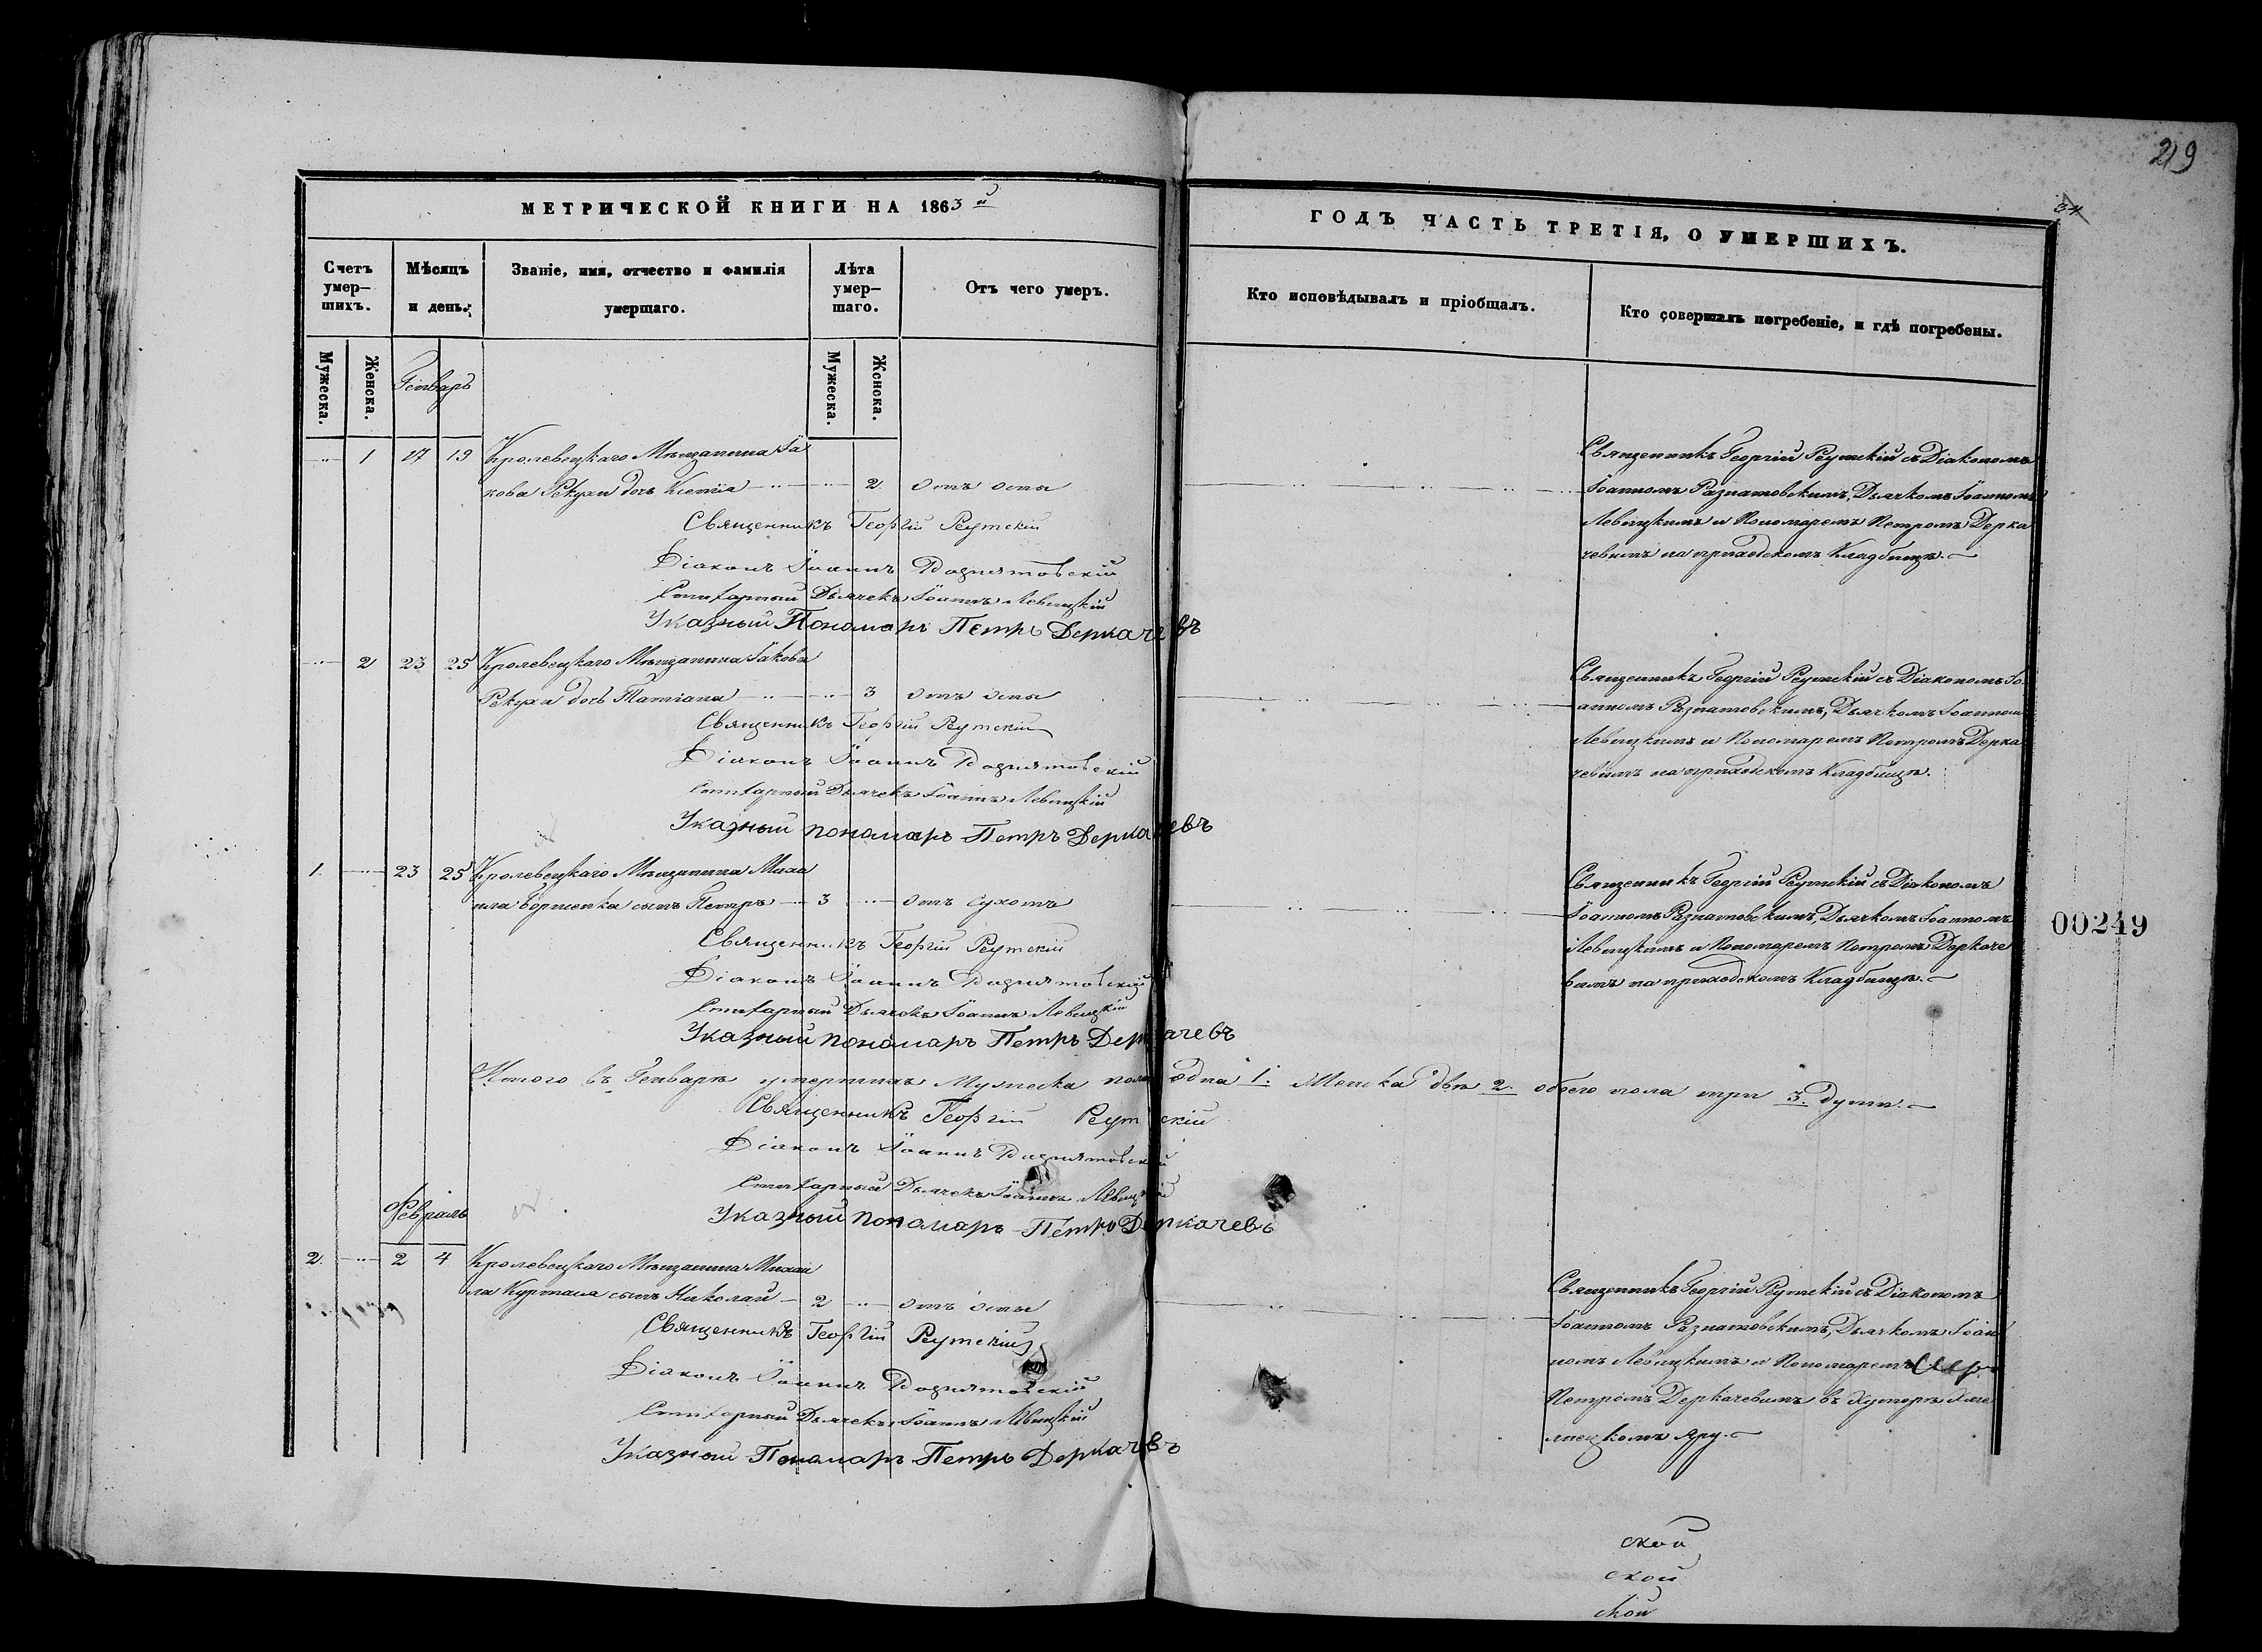 219
МЕТРИЧЕСКОЙ КНИГИ НА 1863 й
ГОДЪ ЧАСТЬ ТРЕТІЯ, О УМЕРШИХЪ.
Счетъ умер-шихъ.
Мѣсяцъ и день.
Званіе, имя, отчество и фамилія умершаго.
Лѣта умер-шаго.
Отъ чего умеръ.
Кто исповѣдывалъ и пріобщалъ.
Кто совершалъ погребеніе, и гдѣ погребены.
Мужеска.
Женска.
Генварь
Мужеска.
Женска.
1 17 19 Кролевецкаго Мѣщанина Іа
кова Рекухи дочь Ксенія 2 отъ оспы
Священникъ Георгій Реутскій съ Діакономъ
Іоанномъ Разнатовскимъ, Дьячкомъ Іоанномъ
Левицкимъ и Пономаремъ Петромъ Дерка
чевымъ на приходскомъ Кладбищѣ.
Священникъ Георгій Реутскій
Діаконъ Іоаннъ Разнатовскій
Дьячекъ Іоаннъ Левицкій
Указный Пономарь Петръ Деркачевъ
2 23 25 Кролевецкаго Мѣщанина Іакова
Рекухи дочь Татіана 3 отъ оспы
Священникъ Георгій Реутскій съ Діакономъ Іо
анномъ Разнатовскимъ, Дьячкомъ Іоанномъ
Левицкимъ и Пономаремъ Петромъ Дерка
чевымъ на приходскомъ Кладбищѣ.
Священникъ Георгій Реутскій
Діаконъ Іоаннъ Разнатовскій
Дьячекъ Іоаннъ Левицкій
Указный пономарь Петръ Деркачевъ
1. 23 25 Кролевецкаго Мѣщанина Миха
ила сынъ Петръ 3 отъ сухотъ
Священникъ Георгій Реутскій съ Діакономъ
Іоанномъ Разнатовскимъ, Дьячкомъ Іоанномъ
Левицкимъ и Пономаремъ Петромъ Деркаче
вымъ на приходскомъ Кладбищѣ.
00249
Священникъ Георгій Реутскій
Діаконъ Іоаннъ Разнатовскій
Дьячекъ Іоаннъ Левицкій
Указный пономарь Петръ Деркачевъ
Итого въ Генварѣ умершихъ Мужеска пола одна 1. Женска двѣ 2. обоего пола три 3. души.
Священникъ Георгій Реутскій
Діаконъ Іоаннъ Разнатовскій
Дьячекъ Іоаннъ Левицкій
Указный пономарь Петръ Деркачевъ
Февраль
2. 2 4 Кролевецкаго Мѣщанина Михаи
ла сынъ Николай 2 отъ оспы
Священникъ Георгій Реутскій съ Діакономъ
Іоанномъ Разнатовскимъ, Дьячкомъ Іоан
номъ Левицкимъ и Пономаремъ
Петромъ Деркачевымъ въ Хуторѣ
Яру.
Священникъ Георгій Реутскій
Діаконъ Іоаннъ Разнатовскій
Дьячекъ Іоаннъ Левицкій
Указный Пономарь Петръ Деркачевъ
ской
ской
ской